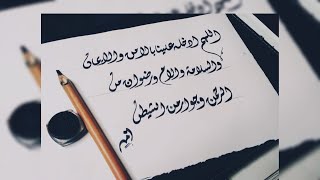 اللهم ادخله علينا بالامن والايمان
والسلامة والاسلام ورضوان من
الرحمٰن وجوار من الشيطٰن